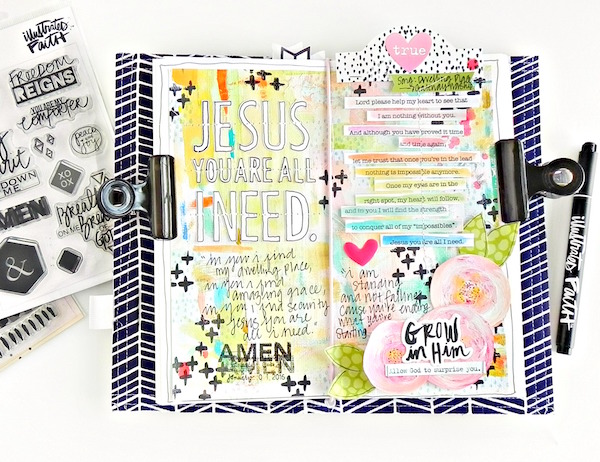 illustrated
FAITH
FREEDOM
REIGNS
YOU ARE MY
comforter
DOWN ME
XO
OX
AMEN
Breathe
ON ME
&
JESUS
YOU ARE ALL
I NEED.
"in you i find
my dwelling place,
in you i find
amazing grace,
in you i find security
Jesus you are
all i need."
AMEN
AMEN
true
Lord please help my heart to see that
I am nothing without you.
And although you have proved it time
and time again,
let me trust that once you're in the lead
nothing is impossible anymore.
Once my eyes are in the
right spot, my heart will follow,
and in you I will find the strength
to conquer all of my "impossibles"
Jesus you are all I need.
"i am
standing
and not falling
cause you're ending
what you're
starting
GROW
in Him
Allow God to surprise you.
illustrated FAITH